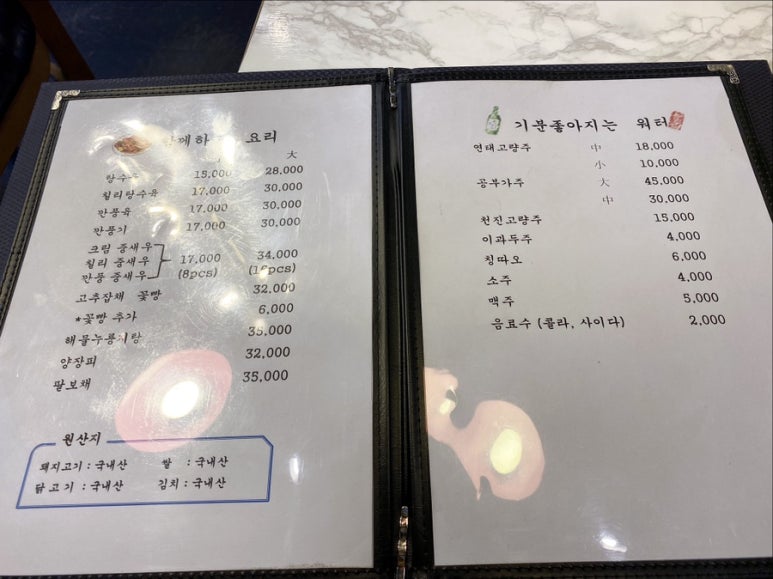 함께하는 요리
大
탕수육 15,000 28,000
칠리탕수육 17,000 30,000
깐풍육 17,000 30,000
깐풍기 17,000 30,000
크림 중새우
칠리 중새우 17,000 34,000
깐풍 중새우 (8pcs) (16pcs)
고추잡채 꽃빵 32,000
*꽃빵 추가 6,000
해물누룽지탕 35,000
양장피 32,000
팔보채 35,000
원산지
돼지고기 : 국내산 쌀 : 국내산
닭고기 : 국내산 김치 : 국내산
기분좋아지는 워터
연태고량주 中 18,000
小 10,000
공부가주 大 45,000
中 30,000
천진고량주 15,000
이과두주 4,000
칭따오 6,000
소주 4,000
맥주 5,000
음료수 (콜라, 사이다) 2,000